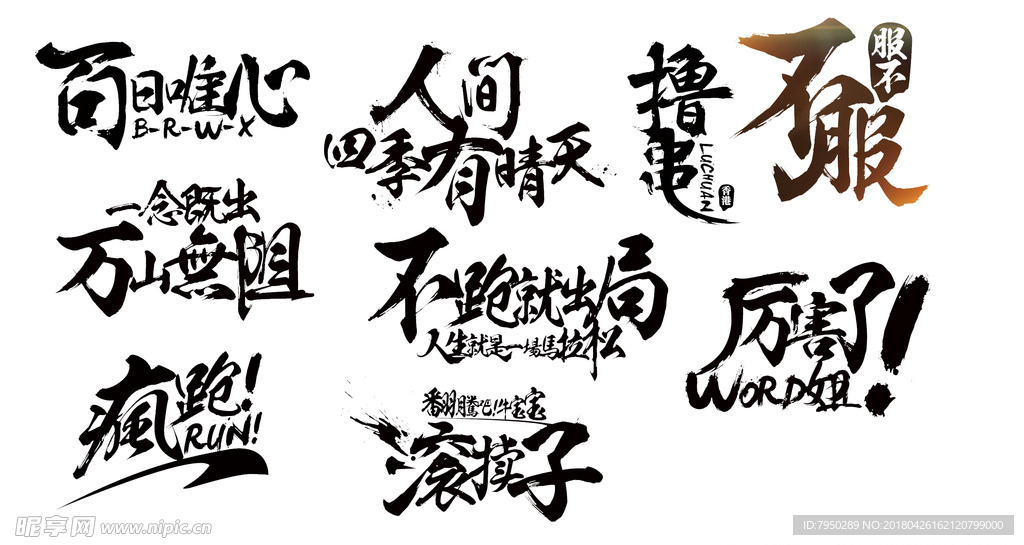 百日唯心
B-R-W-X
人间
四季有晴天
撸串
LUCHUAN
香港
不服
服不
一念既出
万山無阻
不跑就出局
人生就是一場馬拉松
厉害了!
WORD姐!
瘋跑!
RUN!
翻腾吧!牛宝宝
滚犊子
昵享网 www.nipic.cn
ID:7950289 NO:20180426162120799000